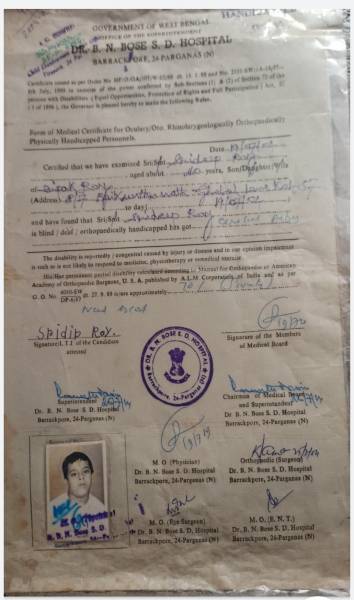 GOVERNMENT OF WEST BENGAL
OFFICE OF THE SUPERINTENDENT
DR. B. N. BOSE S. D. HOSPITAL
BARRACKPORE, 24-PARGANAS (N)
Certificate issued as per Order No
persons with Disabilities (Equal Opportunities, Protection of Rights and Full Participation) Act,
is pleased to make the following Rules.
Form of Medical Certificate for Ocular/Oto. Rhinolaryngologically Orthopaedically
Physically Handicapped Personnels.
Date
Certified that we have examined Sri/Smt Sridip Roy
aged about years, Son/Daughter/Wife
of Dipak Roy
(Address)
to day)
and have found that Sri/Smt Sridip Roy
is blind / deaf / orthopaedically handicapped has got Cerebral Palsy
The disability is congenital caused by injury or disease and in our opinion impairment
is such as is not likely to respond to medicine, physiotherapy or remedial exercise.
His/Her permanent partial disability calculated Manual for Orthopaedic of American
Academy of Orthopaedic Surgeons, U. S. A. published by A.L.M. Corporation of India and as per
G. O. No. dt. 27. 9. 88 is/are approximately
Need escort
Sridip Roy.
Signature/L.T.I of the Candidate
attested
Signature of the Members
of Medical Board
DR. B. N. BOSE S. D. HOSPITAL
Barrackpore, 24-Parganas (N)
Superintendent
Dr. B. N. Bose S. D. Hospital
Barrackpore, 24-Parganas (N)
Chairman of Medical Board
and Superintendent
Dr. B. N. Bose S. D. Hospital
Barrackpore, 24-Parganas (N)
M. O (Physician)
Dr. B. N. Bose S. D. Hospital
Barrackpore, 24-Parganas (N)
Orthopaedic (Surgeon)
Dr. B. N. Bose S. D. Hospital
Barrackpore, 24-Parganas (N)
M. O. (Eye Surgeon)
Dr. B. N. Bose S. D. Hospital
Barrackpore, 24-Parganas (N)
M. O. (E. N. T.)
Dr. B. N. Bose S. D. Hospital
Barrackpore, 24-Parganas (N)